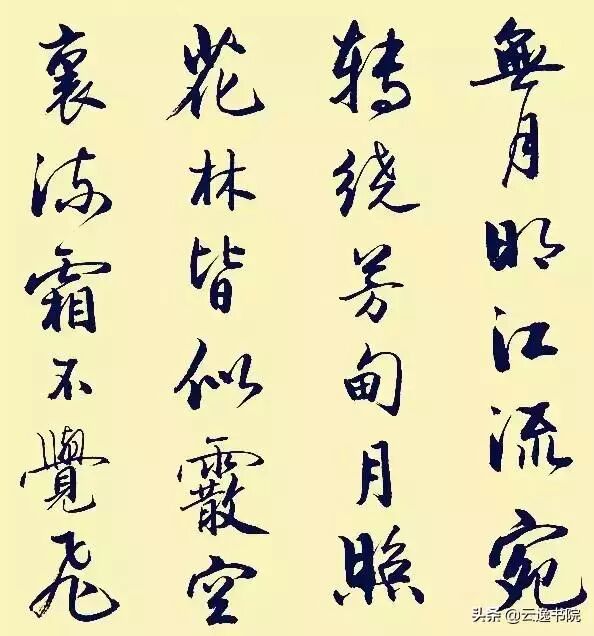 無月明江流宛
轉繞芳甸月照
花林皆似霰空
裏流霜不覺飛
头条 @云逸书院